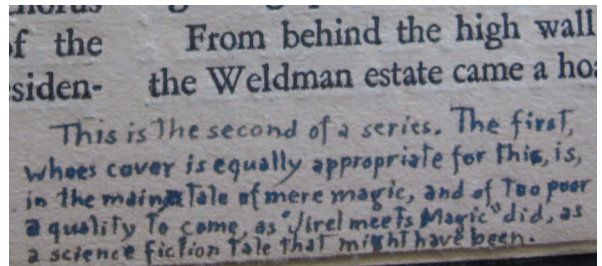 of the
siden-
From behind the high wall
the Weldman estate came a hoa
This is the second of a series. The first,
whoes cover is equally appropriate for this, is,
in the main, a tale of mere magic, and of too poor
a quality to come, as "Jirel meets Magic" did, as
a science fiction tale that might have been.